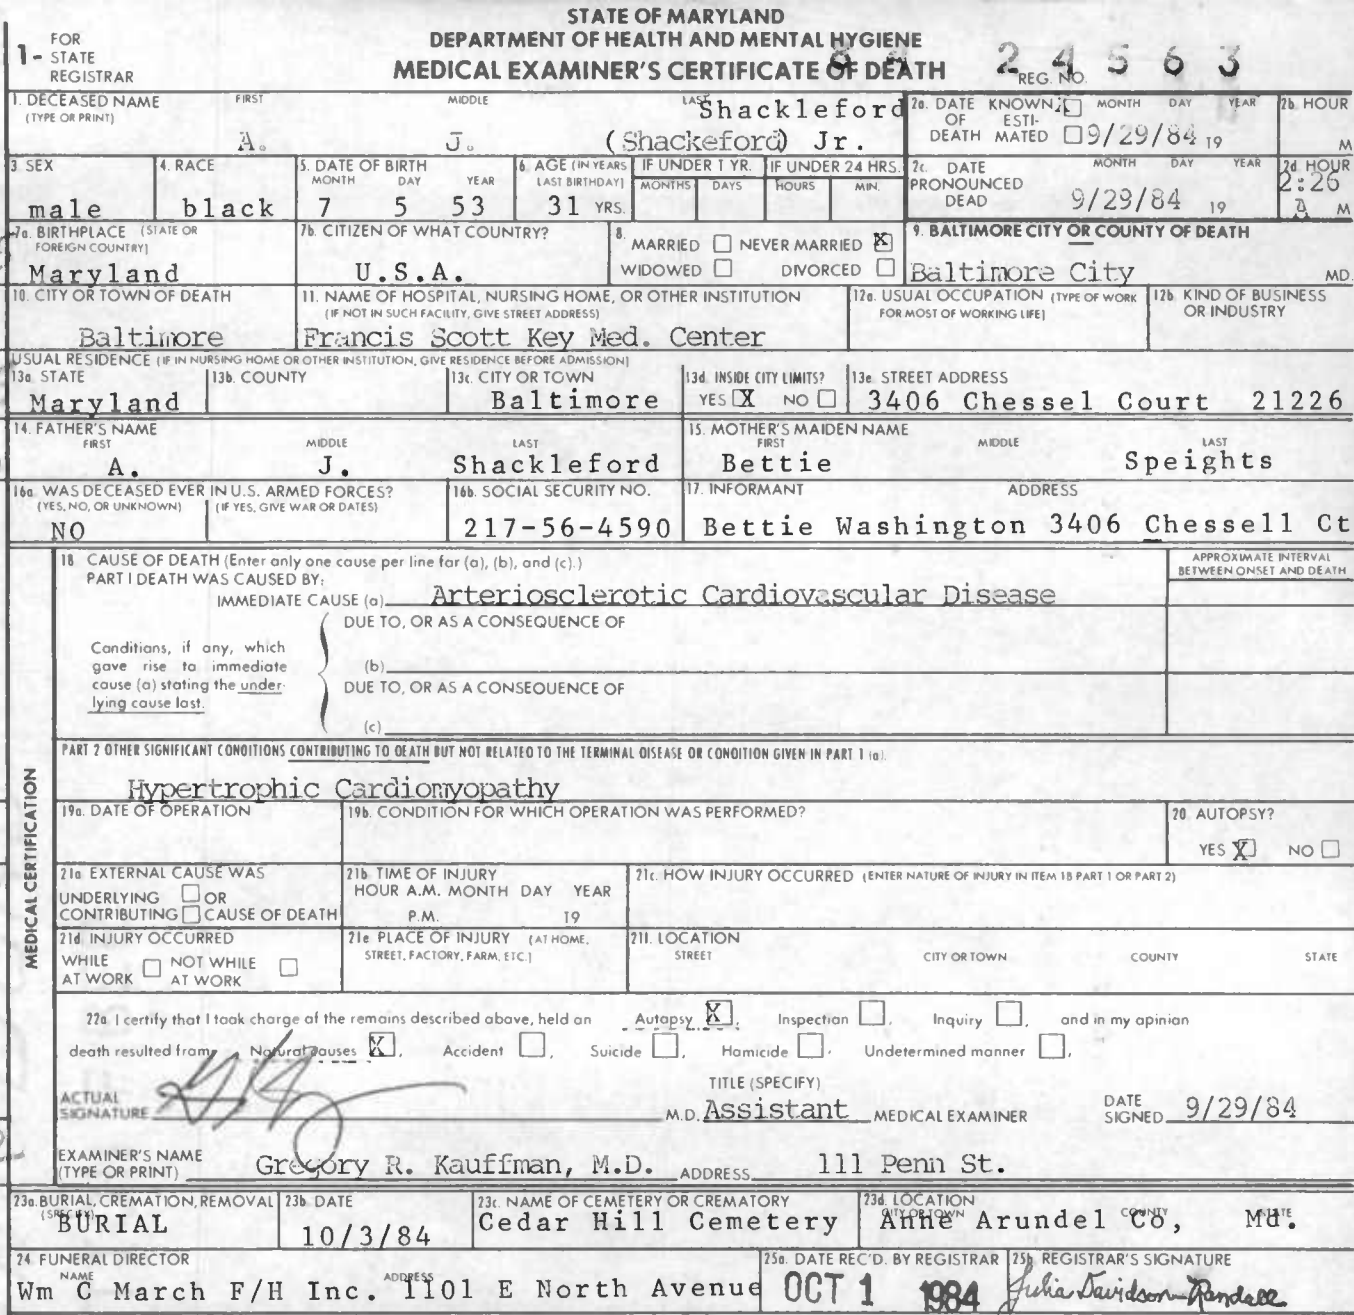 STATE OF MARYLAND
DEPARTMENT OF HEALTH AND MENTAL HYGIENE
MEDICAL EXAMINER'S CERTIFICATE OF DEATH
1- FOR STATE REGISTRAR
84 24563
REG. NO.
1. DECEASED NAME (TYPE OR PRINT) FIRST MIDDLE LAST
A. J. Shackleford (Shackeford) Jr.
2a. DATE OF DEATH KNOWN ESTIMATED MONTH DAY YEAR
9/29/84 19
2b. HOUR M
3 SEX
male
4. RACE
black
5. DATE OF BIRTH MONTH DAY YEAR
7 5 53
6. AGE (IN YEARS LAST BIRTHDAY)
31 YRS.
IF UNDER 1 YR. MONTHS DAYS
IF UNDER 24 HRS. HOURS MIN.
2c. DATE PRONOUNCED DEAD MONTH DAY YEAR
9/29/84 19
2d HOUR
2:26 A M
7a. BIRTHPLACE (STATE OR FOREIGN COUNTRY)
Maryland
7b. CITIZEN OF WHAT COUNTRY?
U.S.A.
8. MARRIED NEVER MARRIED X
WIDOWED DIVORCED
9. BALTIMORE CITY OR COUNTY OF DEATH
Baltimore City MD.
10. CITY OR TOWN OF DEATH
Baltimore
11. NAME OF HOSPITAL, NURSING HOME, OR OTHER INSTITUTION
(IF NOT IN SUCH FACILITY, GIVE STREET ADDRESS)
Francis Scott Key Med. Center
12a. USUAL OCCUPATION (TYPE OF WORK FOR MOST OF WORKING LIFE)
12b. KIND OF BUSINESS OR INDUSTRY
USUAL RESIDENCE (IF IN NURSING HOME OR OTHER INSTITUTION, GIVE RESIDENCE BEFORE ADMISSION)
13a STATE
Maryland
13b. COUNTY
13c. CITY OR TOWN
Baltimore
13d. INSIDE CITY LIMITS?
YES X NO
13e. STREET ADDRESS
3406 Chessel Court 21226
14. FATHER'S NAME FIRST MIDDLE LAST
A. J. Shackleford
15. MOTHER'S MAIDEN NAME FIRST MIDDLE LAST
Bettie Speights
16a. WAS DECEASED EVER IN U.S. ARMED FORCES?
(YES, NO, OR UNKNOWN) (IF YES, GIVE WAR OR DATES)
NO
16b. SOCIAL SECURITY NO.
217-56-4590
17. INFORMANT ADDRESS
Bettie Washington 3406 Chessell Ct
MEDICAL CERTIFICATION
18 CAUSE OF DEATH (Enter only one cause per line for (a), (b), and (c).)
APPROXIMATE INTERVAL BETWEEN ONSET AND DEATH
PART I DEATH WAS CAUSED BY:
IMMEDIATE CAUSE (a) Arteriosclerotic Cardiovascular Disease
DUE TO, OR AS A CONSEQUENCE OF
Conditions, if any, which gave rise to immediate cause (a) stating the underlying cause last.
(b)
DUE TO, OR AS A CONSEQUENCE OF
(c)
PART 2 OTHER SIGNIFICANT CONDITIONS CONTRIBUTING TO DEATH BUT NOT RELATED TO THE TERMINAL DISEASE OR CONDITION GIVEN IN PART 1 (a).
Hypertrophic Cardiomyopathy
19a. DATE OF OPERATION
19b. CONDITION FOR WHICH OPERATION WAS PERFORMED?
20. AUTOPSY?
YES X NO
21a EXTERNAL CAUSE WAS
UNDERLYING OR
CONTRIBUTING CAUSE OF DEATH
21b TIME OF INJURY
HOUR A.M. MONTH DAY YEAR
P.M. 19
21c. HOW INJURY OCCURRED (ENTER NATURE OF INJURY IN ITEM 18 PART 1 OR PART 2)
21d INJURY OCCURRED
WHILE AT WORK NOT WHILE AT WORK
21e PLACE OF INJURY (AT HOME, STREET, FACTORY, FARM, ETC.)
21f. LOCATION
STREET CITY OR TOWN COUNTY STATE
22a. I certify that I took charge of the remains described above, held an Autopsy X, Inspection , Inquiry , and in my opinion
death resulted from Natural causes X, Accident , Suicide , Homicide , Undetermined manner ,
ACTUAL SIGNATURE M.D.
TITLE (SPECIFY)
Assistant MEDICAL EXAMINER
DATE SIGNED 9/29/84
EXAMINER'S NAME (TYPE OR PRINT) Gregory R. Kauffman, M.D. ADDRESS 111 Penn St.
23a. BURIAL, CREMATION, REMOVAL (SPECIFY)
BURIAL
23b. DATE
10/3/84
23c. NAME OF CEMETERY OR CREMATORY
Cedar Hill Cemetery
23d. LOCATION CITY OR TOWN COUNTY STATE
Anne Arundel Co, Md.
24 FUNERAL DIRECTOR
NAME ADDRESS
Wm C March F/H Inc. 1101 E North Avenue
25a. DATE REC'D. BY REGISTRAR
OCT 1 1984
25b. REGISTRAR'S SIGNATURE
Julia Davidson-Randall